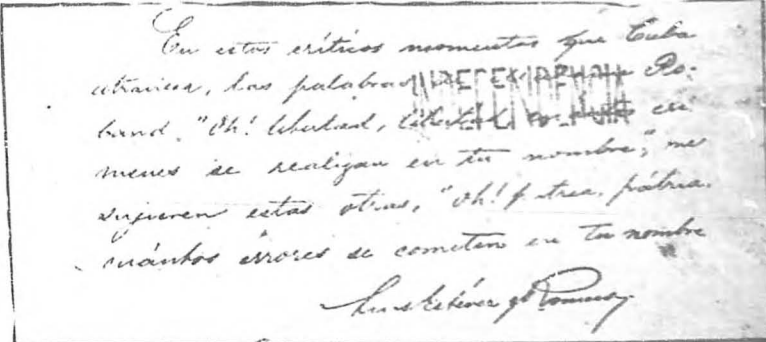 En estos críticos momentos que Cuba
atraviesa, las palabras de Ro-
land, "Oh! libertad, libertad crí
menes se realizan en tu nombre", me
sugieren estas otras, "Oh! pátria,
cuántos errores se cometen en tu nombre
Luis Estévez y Romero
INDEPENDENCIA